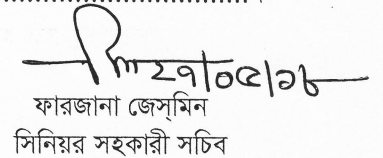 ২৭/০৫/১৮
ফারজানা জেস্‌মিন
সিনিয়র সহকারী সচিব